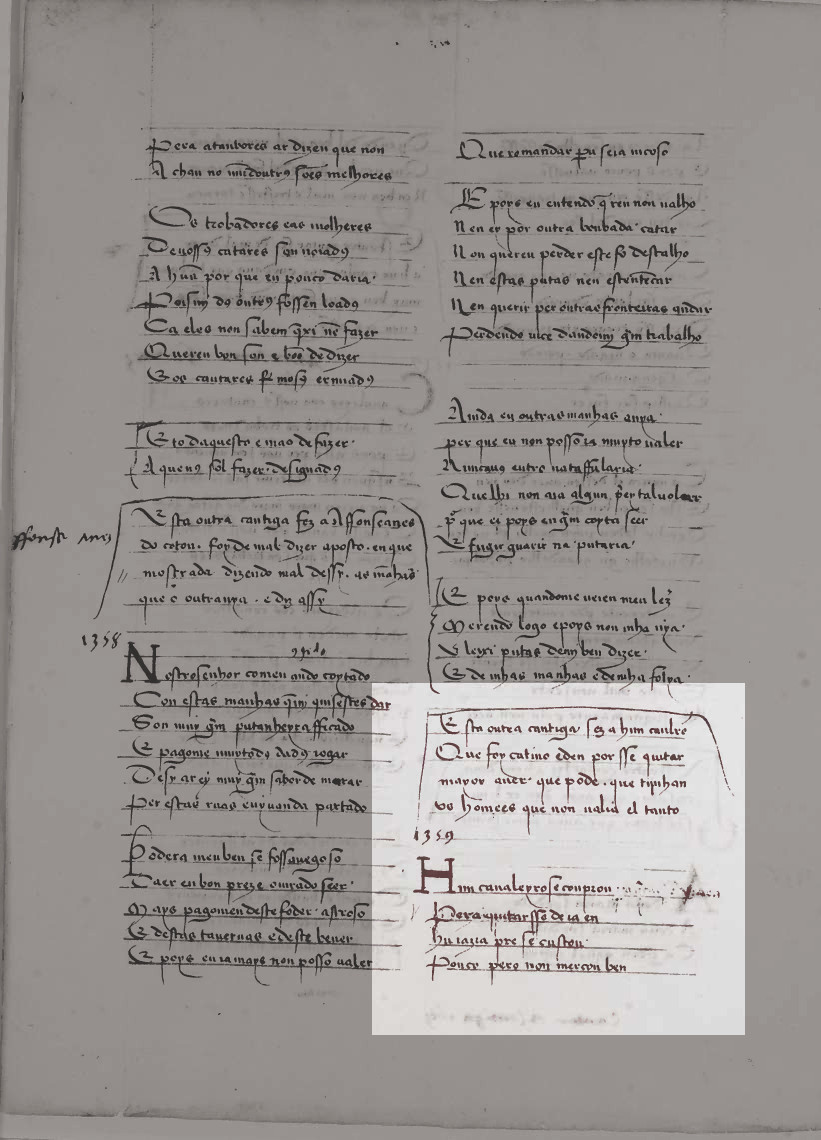 Pera atanbores ar dizen que non
Achan no mūdoutrꝯ sōes melhores
Os trobadores eas molheres
Deuossꝯ catares son noiadꝯ
A hūa por que eu pouco daria
Ca eles non sabem
Queren bon son e boō de dizer
E os cantares fremosꝯ e rimadꝯ
E to daquesto e mao de fazer
A quenꝯ sol fazer desiguadꝯ
Esta outra cantiga fez a Affonseanes
do coton. foy de mal dizer aposto. en que
mostrada dizendo mal dessy. as mãhas
que ē outrauya. e diz assy
1358
Nostrosenhor comeu ando coytado
Con estas manhas q̄mj quisestes dar
Son muy gm̄ putanheyrafficado
E pagome muytodꝯ dadꝯ iogar
Desy ar ey muy gm̄ sabor de morar
Per estas ruas euyuanda partado
Podera meu ben se fossauegoso
Caer en bon preze onrrado seer
Mays pagomen deste foder astroso
E destas tauernas e deste beuer
E poys eu ia mays non posso ualer
Que romandar seia uicoso
E poys eu entendo q̄ ren non ualho
Nen ey por outra bonbada catar
Non quereu perder este fodestalho
Nen estas putas nen estentēcar
Nen querir per outras fronteiras
Perdendo uice dandomj gm̄ trabalho
Ainda eu outras manhas auya
per que eu non posso ia muyto ualer
Nuncaus entro na taffularia
Quelhi non aia algun preytaluoluer
pr̄ que ei poys en gm̄ coyta seer
E fugir guarir na putaria
E poys quandome ueien meu lez̄
Merendo logo epoys non mha uya
Uleyxi putas demj ben dizer
E de mhas manhas e de mha folya
Esta outra cantiga fez a hun caulro
Que foy catiuo e den por sse quitar
mayor auer que pode. que tijnhan
os homēes que non ualia el tanto
1359
Hun caualeyro se conprou
Pera quitarsse de ia en
hu iazia pre se custou
Pouco pero non mercou ben